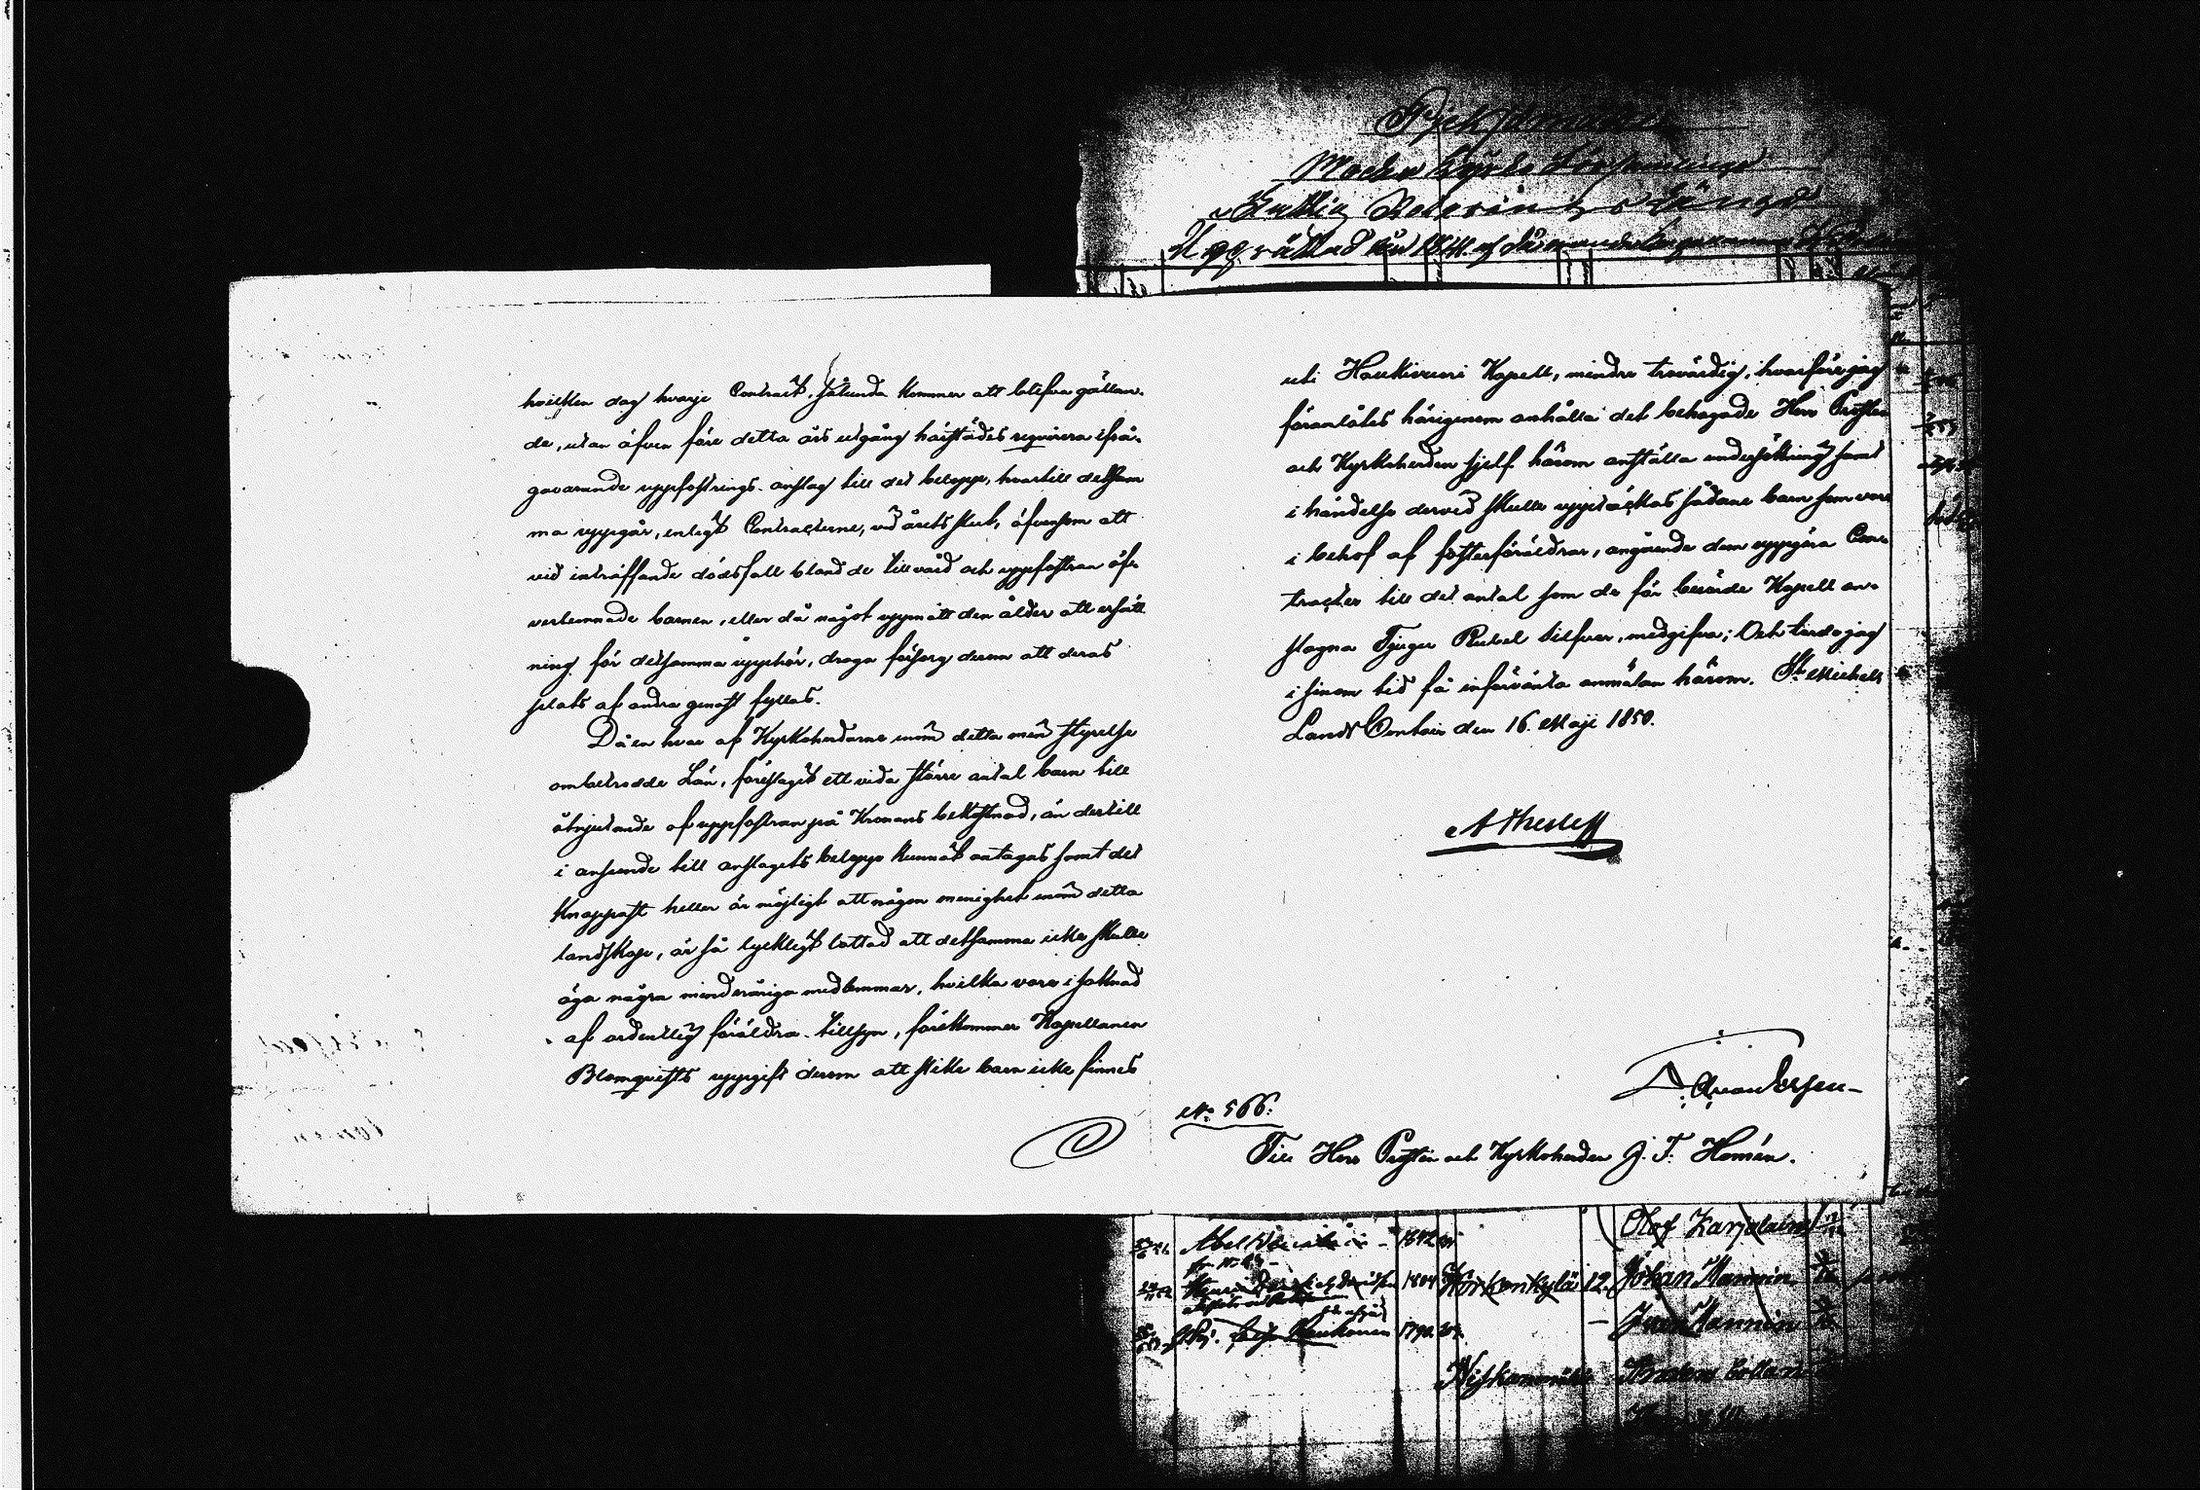 hvilken dag hvarje Contract, sålunda kommer att blifva gällan-
de, utan äfven före detta års utgång härstädes requirera ifrå-
gavarande uppfostrings-anslag till det belopp, hvartill detsam
ma uppgår, enligt Contracterne, vid årets slut, äfvensom att
vid inträffande dödsfall bland de till vård och uppfostran öf-
verlemnade barnen, eller då något uppnått den ålder att erhåll
ning för detsamma upphör, draga försorg derom att deras
plats af andra genast fyllas.
Då en hvar af Kyrkoherdarne inom detta min styrelse
ombetrodde Län, föreslagit ett vida större antal barn till
åtnjutande af uppfostran på Kronans bekostnad, än dertill
i anseende till anslagets belopp kunnat antagas samt det
knappast heller är möjligt att någon menighet inom detta
landskap, är så lyckligt lottad att detsamma icke skulle
äga några minderåriga medlemmar, hvilka vore i saknad
af ordentlig föräldra-tillsyn, förekommer Kapellanen
Blomqvists uppgift derom att slike barn icke finnes
uti Haukivuori Kapell, mindre trovärdig, hvarföre jag
föranlåtes härigenom anhålla det behagade Herr Prosten
och Kyrkoherden sjelf härom anställa undersökning samt
i händelse dervid skulle upptäckas sådane barn som vore
i behof af fosterföräldrar, angående dem uppgöra Con-
tracter till det antal som de för berörde Kapell an-
slagna Tjugu Rubel silfver, medgifva; Och torde jag
i sinom tid få införvänta anmälan härom. St Michels
Lands Contoir den 16. Maji 1850.
A Thesleff
No 566.
Till Herr Prosten och Kyrkoherden J. F. Homén.
Moder Kyrko Församlings
Upprättad år
1842
1804
Korkenkylä 12.
Johan Manninen
1790
Olof Karjalainen